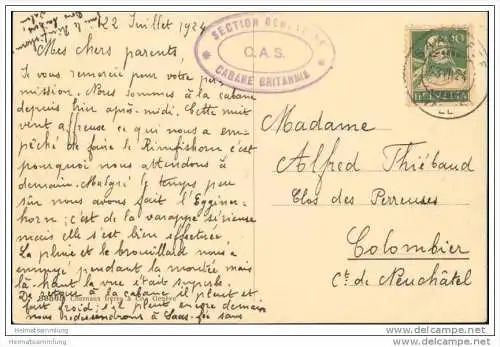 22 Juillet 1924
Mes chers parents,
Je vous remercie pour votre per-
mission. Nous sommes à la cabane
depuis hier aprè-midi. Cette nuit
vent affreuse ce qui nous a em-
pêché de faire le Rimpfishorn c'est
pourquoi nous attendons à
demain. Malgré le temps peu
sûr nous avons fait l'Eggine-
horn; c'est de la varappe sérieuse
mais elle s'est bien effectuée.
La pluie et le brouillard nous a
ennuyé pendant la montée mais
là-haut la vue était superbe.
De retour à la cabane il pleut et
fait froid; s'il pleut encore demain
nous redescendrons à Saas-fée sans
SECTION GENEVOISE
C.A.S.
CABANE BRITANNIA
10
HELVETIA
Madame
Alfred Thiébaud
Clos des Perreuses
Colombier
Ct. de Neuchâtel
frères & Co. Genève
Heimatsammlung
http://Heimatsammlung.delcampe.net